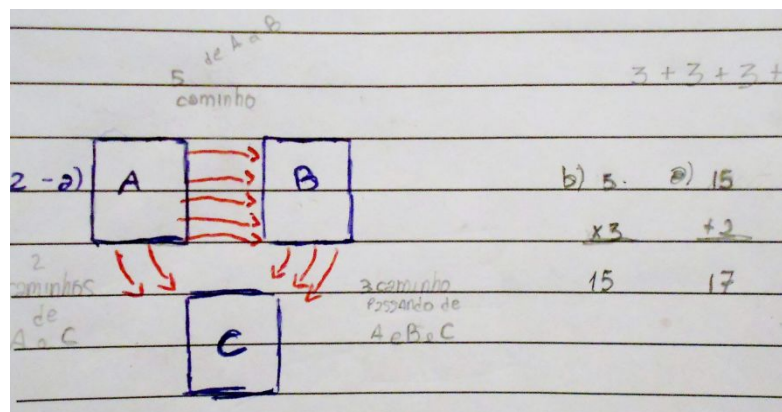 de A a B
5
caminho
3 + 3 + 3 +
2 - a)
A
B
b) 5.
x3
15
c) 15
+2
17
2
caminhos
de
A a C
3 caminho
Passando de
A e B e C
C